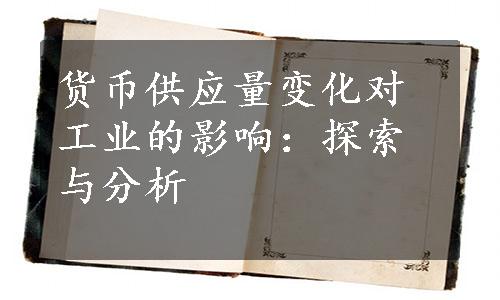 货币供应量变化对
工业的影响：探索
与分析